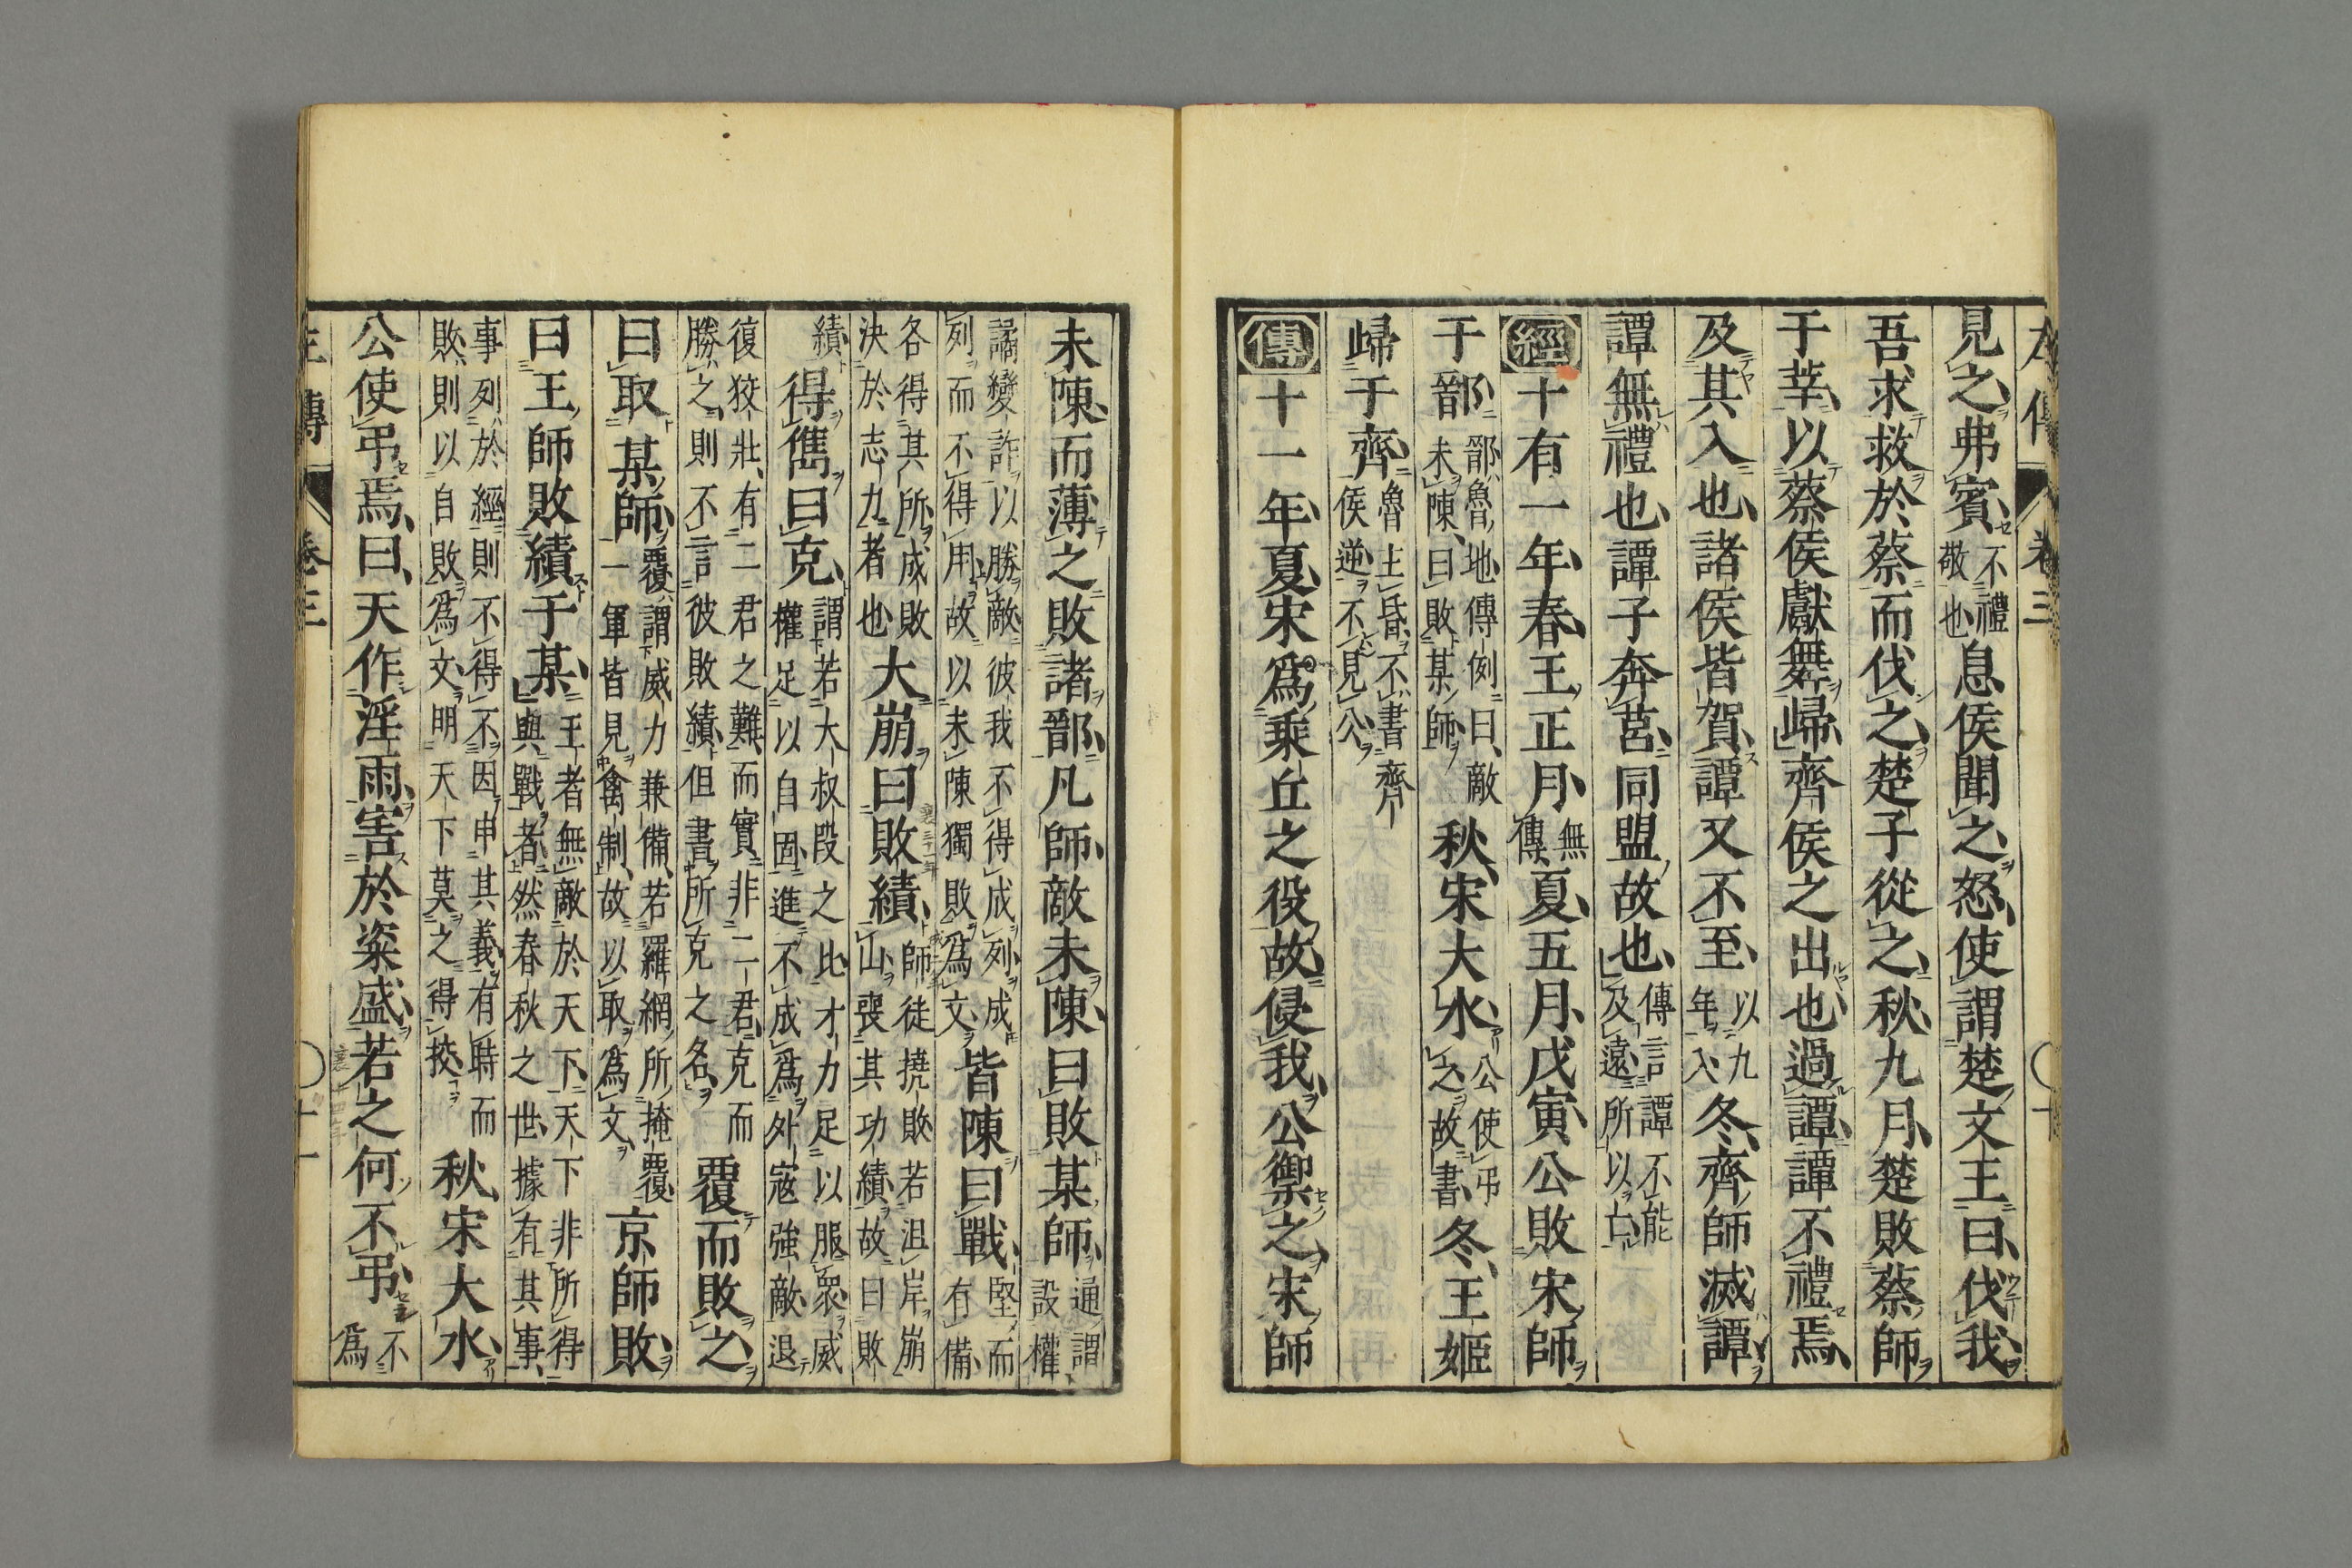 見之弗賓不禮敬也息侯聞之怒使謂楚文王曰伐我
吾求救於蔡而伐之楚子從之秋九月楚敗蔡師
于莘以蔡侯獻舞歸齊侯之出也過譚譚不禮焉
及其入也諸侯皆賀譚又不至以九年入冬齊師滅譚
譚無禮也譚子奔莒同盟故也傳言譚不能及遠所以亡
經十有一年春王正月無傳夏五月戊寅公敗宋師
于鄑鄑魯地傳例曰敵未陳曰敗某師秋宋大水公使弔之故書冬王姬
歸于齊魯主昏不書齊侯逆不見公
傳十一年夏宋爲乘丘之役故侵我公禦之宋師
未陳而薄之敗諸鄑凡師敵未陳曰敗某師通謂設權
譎變詐以勝敵彼我不得成列成列而不得用故以未陳獨敗爲文皆陳曰戰堅而有備
各得其所成敗決於志力者也大崩曰敗績師徒撓敗若沮岸崩山喪其功績故曰敗
績得儁曰克謂若大叔段之比才力足以服衆威權足以自固進不成爲外寇強敵退
復狡壯有二君之難而實非二君克而勝之則不言彼敗績但書所克之名覆而敗之
曰取某師覆謂威力兼備若羅網所掩覆一軍皆見禽制故以取爲文京師敗
曰王師敗績于某王者無敵於天下天下非所得與戰者然春秋之世據有其事
事列於經則不得不因申其義有時而敗則以自敗爲文明天下莫之得挍秋宋大水
公使弔焉曰天作淫雨害於粢盛若之何不弔不爲
左傳 卷三 十一